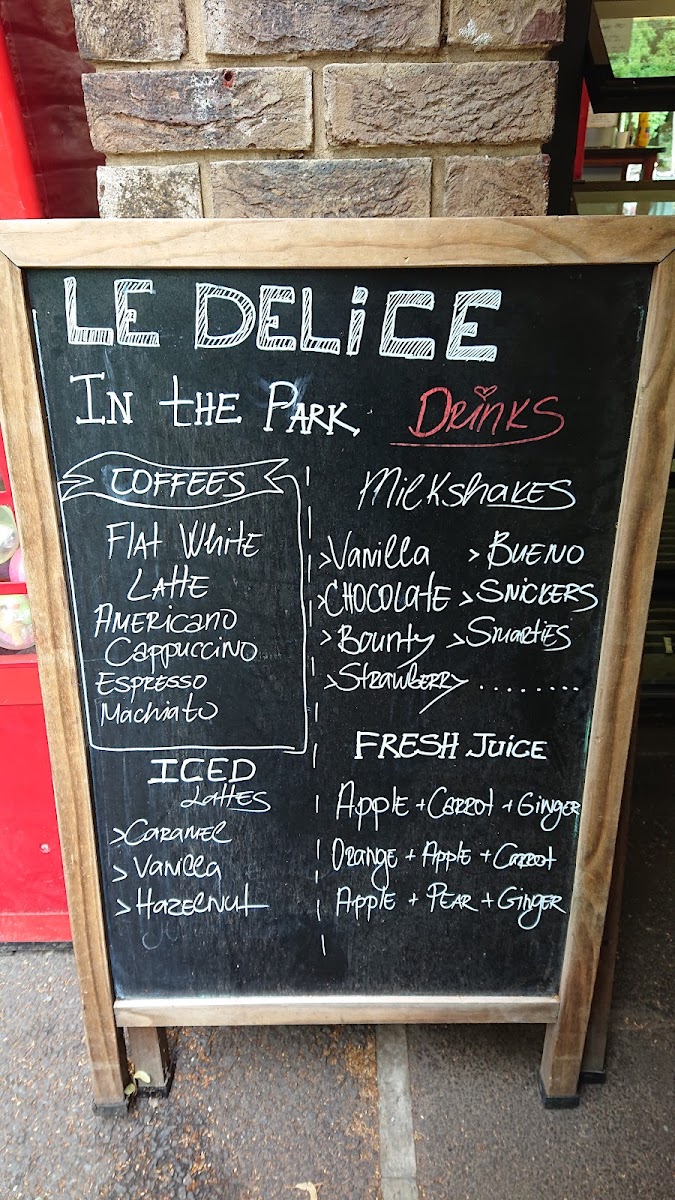 LE DELiCE
IN tHE PARK
DRiNKS
COFFEES
FlAt WhitE
LAttE
AMERiCANO
CAppUCCiNO
ESPRESSO
MAChiAtO
ICED
LAttES
>CARAMEL
>VANillA
>HAZELNUt
MilKShAKES
>VANillA
>CHOCOLAtE
>BOUNty
>StRAWbERRy ........
>BUENO
>SNiCKERS
>SMARtiES
FRESH JUiCE
APPlE + CARROt + GiNGER
ORANGE + APPlE + CARROt
APPlE + PEAR + GiNGER